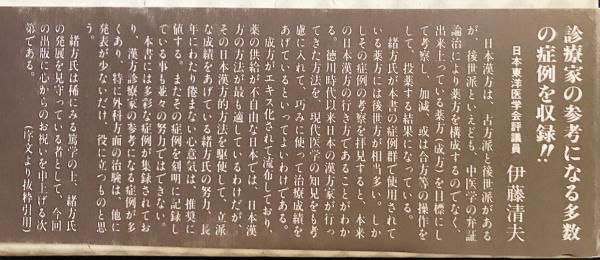 診療家の参考になる多数
の症例を収録!!
日本東洋医学会評議員 伊藤清夫
日本漢方は、古方派と後世派がある
が、後世派といえども、中医学の弁証
論治により薬方を構成するのでなく、
出来上っている薬方（成方）を目標にし
て考察し、加減、或は合方等の操作を
して、投薬する結果になっている。
緒方氏が本書の症例群で使用されて
いる薬方には後世方が相当多い。しか
しその症例の考察を拝見すると、本来
の日本漢方の行き方であることがわか
る。徳川時代以来日本の漢方家が行っ
てきた方法を、現代医学の知見をも考
慮に入れて、巧みに使って治療成績を
あげているといってよいわけである。
成方がエキス化されて流布しており、
薬の供給が不自由な日本では、日本漢
方の方法が最も適しているわけだが、
その日本漢方的方法を駆使して、立派
な成績をあげている緒方氏の努力、長
年にわたり倦まない心意気は、推奨に
値する。またその症例を刻明に記録し
ている事も並々の努力ではできない。
本書には多彩な症例が集録されてお
り、漢方診療家の参考になる症例が多
くあり、特に外科方面の治験は、他に
発表が少ないだけ、役に立つものと思
う。
緒方氏は稀にみる篤学の士、緒方氏
の発展を見守っている者として、今回
の出版に心からのお祝いを申上げる次
第である。（序文より抜粋引用）